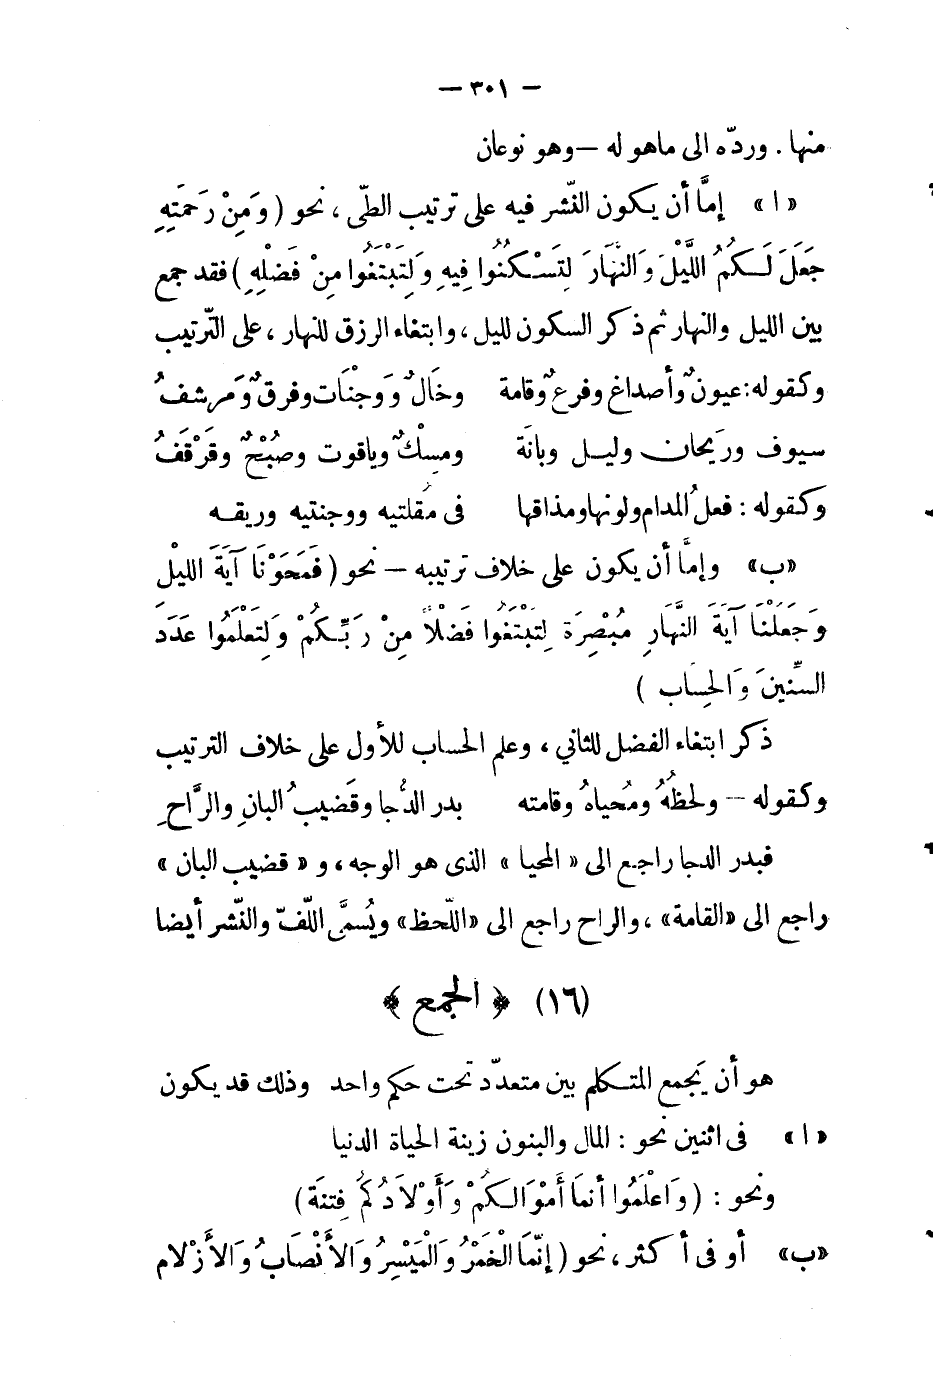 — ٣٠١ —
منها . وردّه الى ماهو له — وهو نوعان
«ا» إمَّا أن يكون النّشر فيه على ترتيب الطّى ، نحو ( وَمِنْ رَحمَتِهِ
جَعَلَ لَكمُ اللَّيْلَ وَالنهَارَ لِتَسْكنُوا فِيهِ وَلِتَبْتَغُوا مِنْ فَضْلِهِ ) فقد جمع
بين الليل والنهار ثم ذكر السكون لليل ، وابتغاء الرزق للنهار ، على التّرتيب
وكقوله: عيونٌ وأصداغ وفرعٌ وقامة وخَالٌ وَوجْنَات وفرقٌ وَمرشفُ
سيوف وريَحان وليل وبانَة ومسْكٌ وياقوت وصُبْحٌ وقَرْقَفُ
وكقوله : فعلُ المدام ولونها ومذاقها فى مُقلتيه ووجنتيه وريقه
«ب» وإمَّا أن يكون على خلاف ترتيبه — نحو ( فَمَحَوْنَا آيَةَ الليْل
وَجَعَلْنَا آيَةَ النَّهَارِ مُبْصِرَة لِتَبْتَغُوا فَضْلاً مِنْ رَبِّكُمْ وَلِتَعْلَمُوا عَدَدَ
السِّنينَ وَالحِسَاب )
ذكر ابتغاء الفضل للثاني ، وعلم الحساب للأول على خلاف الترتيب
وكقوله — ولحظُهُ ومُحياهُ وقامته بدر الدُّجا وقَضيبُ البانِ والرَّاحِ
فبدر الدجا راجع الى « المحيا » الذى هو الوجه ، و « قضيب البان »
راجع الى «القامة» ، والراح راجع الى «اللّحظ» ويُسمَّى اللّفّ والنّشر أيضا
(١٦) ﴿ الجمع ﴾
هو أن يَجمع المتكلم بين متعدّد تحت حكم واحد وذلك قد يكون
«ا» فى اثنين نحو : المال والبنون زينة الحياة الدنيا
ونحو : ( وَاعْلَمُوا أنمَا أَمْوَالكُمْ وَأَوْلاَدُكمُ فِتنَة )
«ب» أو فى أكثر ، نحو ( إنّمَا الْخَمْرُ وَالْمَيْسِرُ وَالأَنْصَابُ وَالأَزْلام